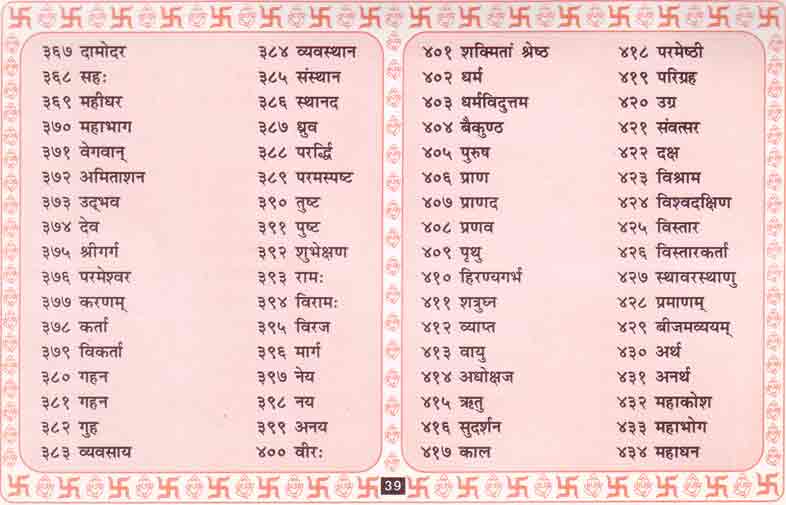 ३६७ दामोदर
३६८ सहः
३६९ महीधर
३७० महाभाग
३७१ वेगवान्
३७२ अमिताशन
३७३ उद्‌भव
३७४ देव
३७५ श्रीगर्ग
३७६ परमेश्वर
३७७ करणम्
३७८ कर्ता
३७९ विकर्ता
३८० गहन
३८१ गहन
३८२ गुह
३८३ व्यवसाय
३८४ व्यवस्थान
३८५ संस्थान
३८६ स्थानद
३८७ ध्रुव
३८८ परर्द्धि
३८९ परमस्पष्ट
३९० तुष्ट
३९१ पुष्ट
३९२ शुभेक्षण
३९३ रामः
३९४ विरामः
३९५ विरज
३९६ मार्ग
३९७ नेय
३९८ नय
३९९ अनय
४०० वीरः
४०१ शक्मितां श्रेष्ठ
४०२ धर्म
४०३ धर्मविदुत्तम
४०४ बैकुण्ठ
४०५ पुरुष
४०६ प्राण
४०७ प्राणद
४०८ प्रणव
४०९ पृथु
४१० हिरण्यगर्भ
४११ शत्रुघ्न
४१२ व्याप्त
४१३ वायु
४१४ अधोक्षज
४१५ ऋतु
४१६ सुदर्शन
४१७ काल
४१८ परमेष्ठी
४१९ परिग्रह
४२० उग्र
४२१ संवत्सर
४२२ दक्ष
४२३ विश्राम
४२४ विश्वदक्षिण
४२५ विस्तार
४२६ विस्तारकर्ता
४२७ स्थावरस्थाणु
४२८ प्रमाणम्
४२९ बीजमव्ययम्
४३० अर्थ
४३१ अनर्थ
४३२ महाकोश
४३३ महाभोग
४३४ महाधन
39